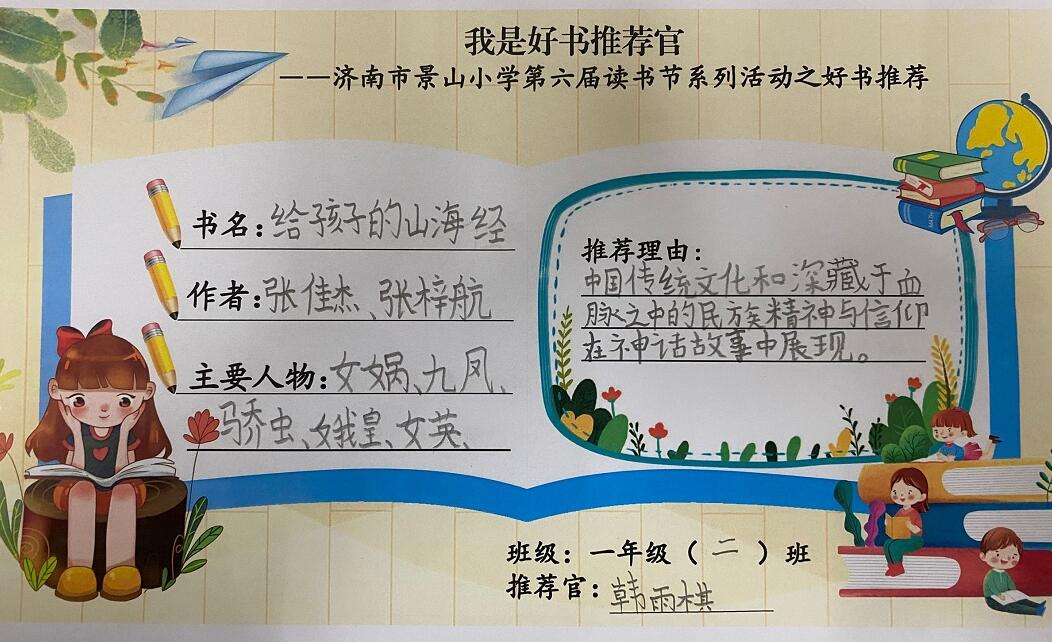 我是好书推荐官
——济南市景山小学第六届读书节系列活动之好书推荐
书名:给孩子的山海经
作者:张佳杰、张梓航
主要人物:女娲、九凤、
骄虫、娥皇、女英、
推荐理由:
中国传统文化和深藏于血
脉之中的民族精神与信仰
在神话故事中展现。
班级:一年级(二)班
推荐官:韩雨棋